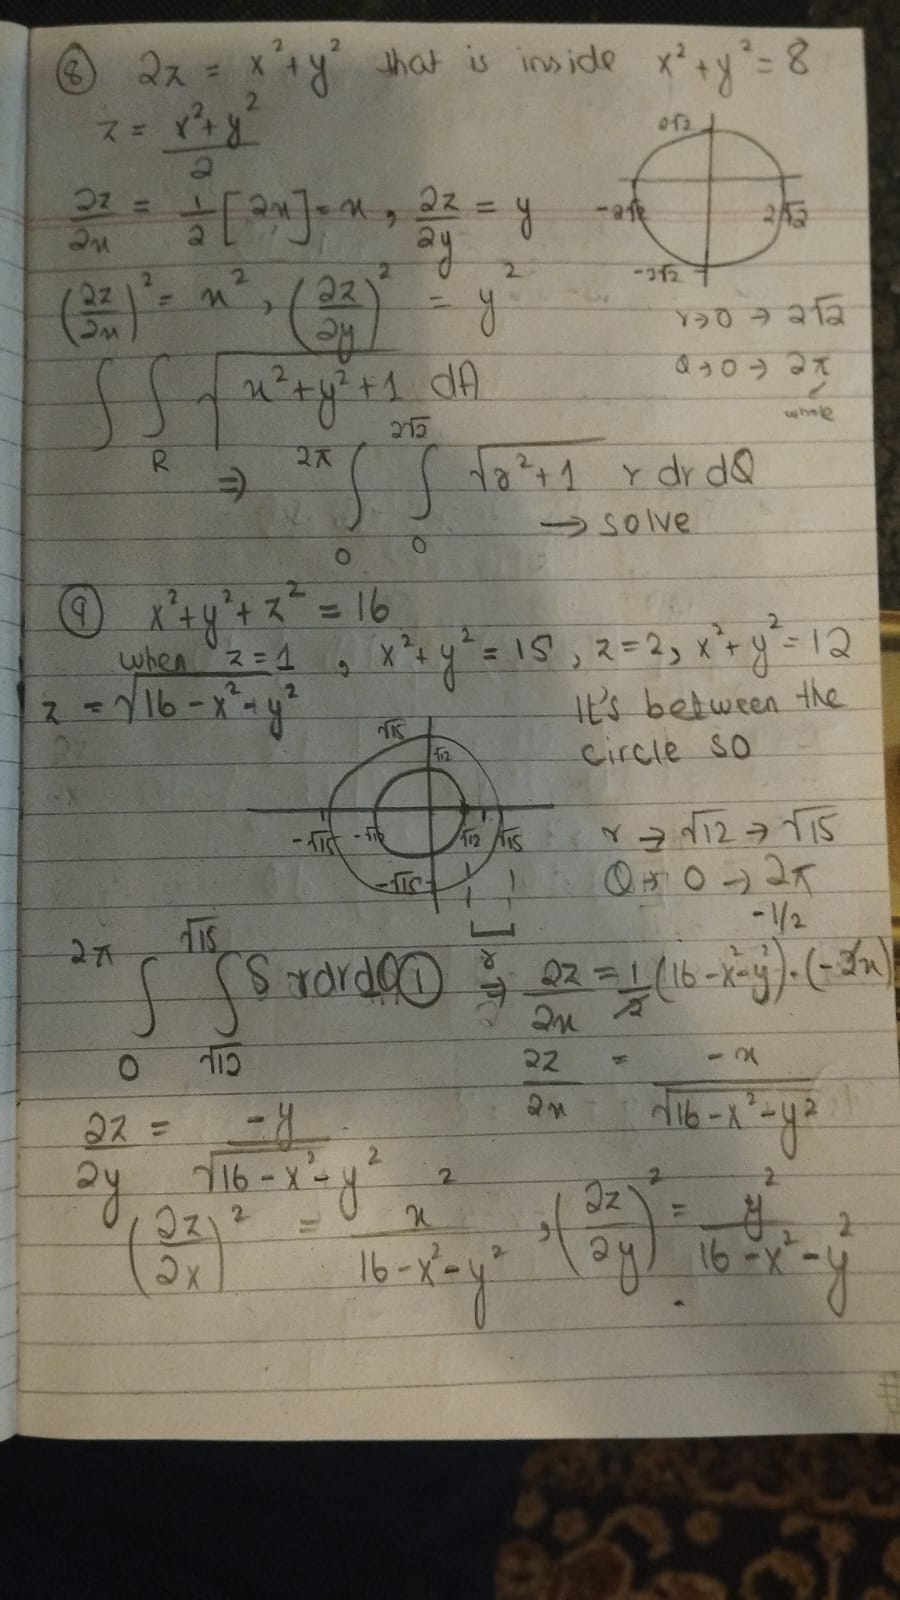 ⑧ 2z = x²+y² that is inside x²+y²=8
z = x²+y²/2
2√2
-2√2 2√2
-2√2
∂z/∂x = 1/2[2x]=x, ∂z/∂y = y
(∂z/∂x)² = x², (∂z/∂y)² = y²
r→0→2√2
θ→0→2π
whole
∫∫_R √x²+y²+1 dA
⇒ ∫_0^2π ∫_0^2√2 √r²+1 r dr dθ
→ solve
⑨ x²+y²+z² = 16
when z=1, x²+y²=15, z=2, x²+y²=12
z = √16-x²-y²
It's between the
circle so
√15
√12
-√15 -√12 √12 √15
-√15
r
r → √12 → √15
θ → 0 → 2π
∫_0^2π ∫_√12^√15 S r dr dθ ① ⇒ ∂z/∂x = 1/2(16-x²-y²)^-1/2 · (-2x)
∂z/∂x = -x/√16-x²-y²
∂z/∂y = -y/√16-x²-y²
(∂z/∂x)² = x²/16-x²-y², (∂z/∂y)² = y²/16-x²-y²